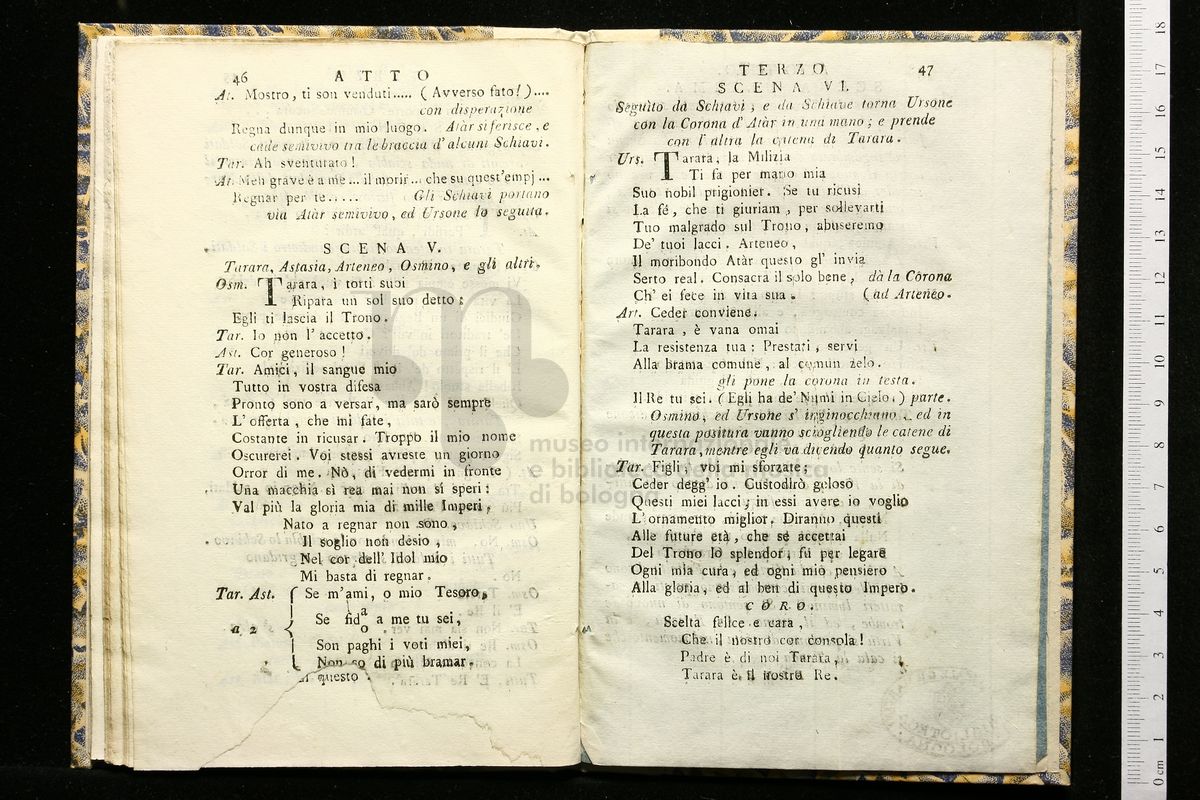 46 ATTO
At. Mostro, ti son venduti..... (Avverso fato!)....
con disperazione
Regna dunque in mio luogo. Atàr si ferisce, e
cade semivivo tra le braccia d'alcuni Schiavi.
Tar. Ah sventurato!
At. Men grave è a me... il morir... che su quest'empj...
Regnar per te..... Gli Schiavi portano
via Atàr semivivo, ed Ursone lo seguita.
SCENA V.
Tarara, Astasia, Arteneo, Osmino, e gli altri.
Osm. Tarara, i torti suoi
Ripara un sol suo detto:
Egli ti lascia il Trono.
Tar. Io non l'accetto.
Ast. Cor generoso!
Tar. Amici, il sangue mio
Tutto in vostra difesa
Pronto sono a versar, ma sarò sempre
L'offerta, che mi fate,
Costante in ricusar. Troppo il mio nome
Oscurerei. Voi stessi avreste un giorno
Orror di me. Nò, di vedermi in fronte
Una macchia sì rea mai non si speri:
Val più la gloria mia di mille Imperi,
Nato a regnar non sono,
Il soglio non desio,
Nel cor dell'Idol mio
Mi basta di regnar.
Tar. Ast. Se m'ami, o mio Tesoro,
a 2 Se fid a/o a me tu sei,
Son paghi i voti miei,
Non so di più bramar.
questo
TERZO 47
SCENA VI.
Seguìto da Schiavi, e da Schiave torna Ursone
con la Corona d'Atàr in una mano; e prende
con l'altra la catena di Tarara.
Urs. Tarara, la Milizia
Ti fa per mano mia
Suo nobil prigionier. Se tu ricusi
La fé, che ti giuriam, per sollevarti
Tuo malgrado sul Trono, abuseremo
De' tuoi lacci. Arteneo,
Il moribondo Atàr questo gl'invia
Serto real. Consacra il solo bene, dà la Corona
Ch'ei fece in vita sua. (ad Arteneo.
Art. Ceder conviene.
Tarara, è vana omai
La resistenza tua: Prestati, servi
Alla brama comune, al comun zelo.
gli pone la corona in testa.
Il Re tu sei. (Egli ha de' Numi in Cielo.) parte.
Osmino, ed Ursone s'inginocchiano, ed in
questa positura vanno sciogliendo le catene di
Tarara, mentre egli va dicendo quanto segue.
Tar. Figli, voi mi sforzate;
Ceder degg'io. Custodirò geloso
Questi miei lacci; in essi avere io voglio
L'ornamento miglior. Diranno questi
Alle future età, che se accettai
Del Trono lo splendor, fù per legare
Ogni mia cura, ed ogni mio pensiero
Alla gloria, ed al ben di questo Impero.
CORO.
Scelta felice e cara,
Che il nostro cor consola!
Padre è di noi Tarara,
Tarara è il nostro Re.
museo internazionale
e biblioteca della musica
di bologna
0 cm 1 2 3 4 5 6 7 8 9 10 11 12 13 14 15 16 17 18